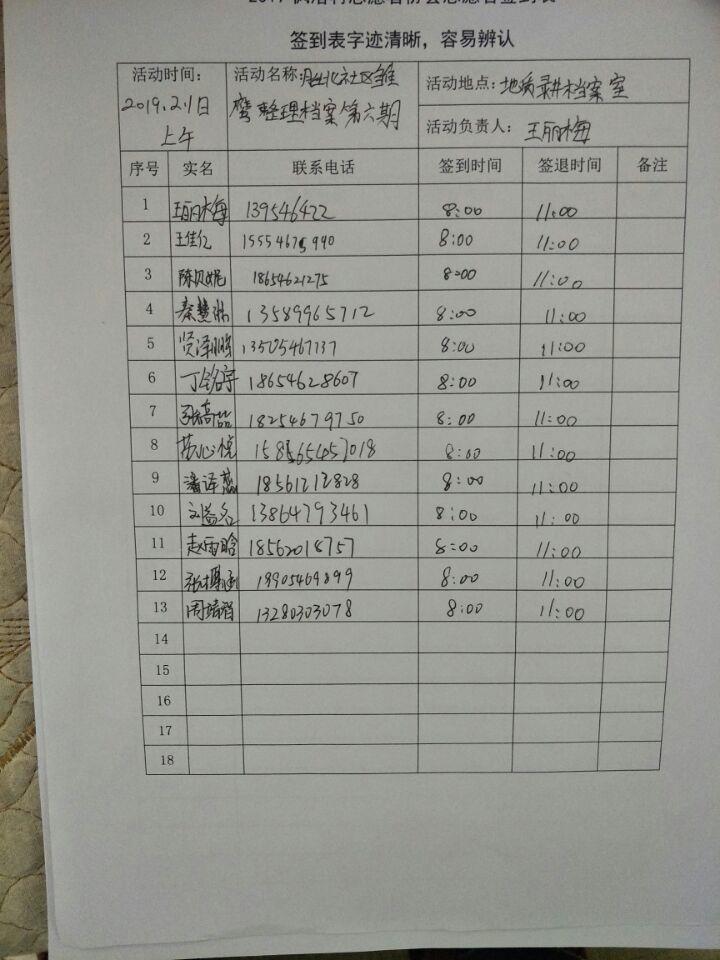 签到表字迹清晰，容易辨认
活动时间： 2019.2.1日 上午
活动名称：胜北社区雏鹰整理档案第六期
活动地点：地质录井档案室
活动负责人：王丽梅
序号 实名 联系电话 签到时间 签退时间 备注
1 王丽梅 139546422 8:00 11:00
2 王佳亿 15554675940 8:00 11:00
3 陈贝妮 18654621275 8:00 11:00
4 秦慧琳 13589965712 8:00 11:00
5 贤泽鹏 13505467137 8:00 11:00
6 丁铭宇 18654628607 8:00 11:00
7 张高品 18254679750 8:00 11:00
8 苏心悦 8:00 11:00
9 潘译蕊 18561212828 8:00 11:00
10 文益名 13864793461 8:00 11:00
11 赵雨晗 18562018757 8:00 11:00
12 13905469899 8:00 11:00
13 周靖智 13280303078 8:00 11:00
14
15
16
17
18